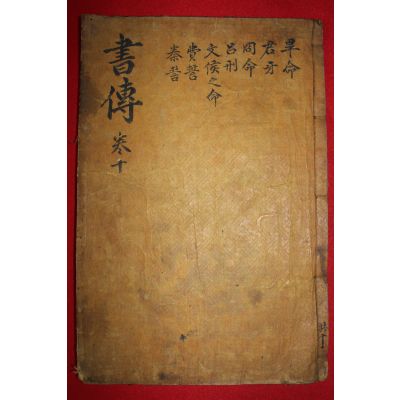 畢命
君牙
冏命
呂刑
文侯之命
費誓
秦誓
書傳
卷十